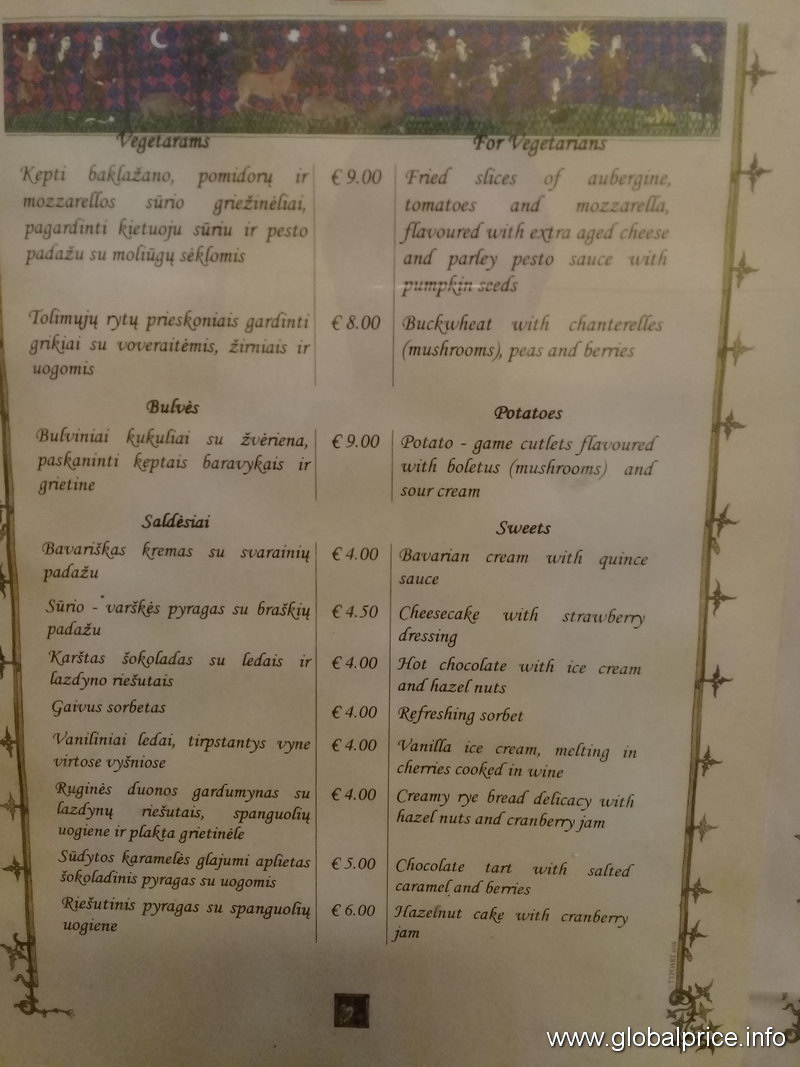 Vegetarams
For Vegetarians
Kepti baklažano, pomidorų ir
mozzarellos sūrio griežinėliai,
pagardinti kietuoju sūriu ir pesto
padažu su moliūgų sėklomis
€ 9.00
Fried slices of aubergine,
tomatoes and mozzarella,
flavoured with extra aged cheese
and parley pesto sauce with
pumpkin seeds
Tolimųjų rytų prieskoniais gardinti
grikiai su voveraitėmis, žirniais ir
uogomis
€ 8.00
Buckwheat with chanterelles
(mushrooms), peas and berries
Bulvės
Potatoes
Bulviniai kukuliai su žvėriena,
paskaninti keptais baravykais ir
grietine
€ 9.00
Potato - game cutlets flavoured
with boletus (mushrooms) and
sour cream
Saldėsiai
Sweets
Bavariškas kremas su svarainių
padažu
€ 4.00
Bavarian cream with quince
sauce
Sūrio - varškės pyragas su braškių
padažu
€ 4.50
Cheesecake with strawberry
dressing
Karštas šokoladas su ledais ir
lazdyno riešutais
€ 4.00
Hot chocolate with ice cream
and hazel nuts
Gaivus sorbetas
€ 4.00
Refreshing sorbet
Vaniliniai ledai, tirpstantys vyne
virtose vyšniose
€ 4.00
Vanilla ice cream, melting in
cherries cooked in wine
Ruginės duonos gardumynas su
lazdynų riešutais, spanguolių
uogiene ir plakta grietinėle
€ 4.00
Creamy rye bread delicacy with
hazel nuts and cranberry jam
Sūdytos karamelės glajumi aplietas
šokoladinis pyragas su uogomis
€ 5.00
Chocolate tart with salted
caramel and berries
Riešutinis pyragas su spanguolių
uogiene
€ 6.00
Hazelnut cake with cranberry
jam
www.globalprice.info